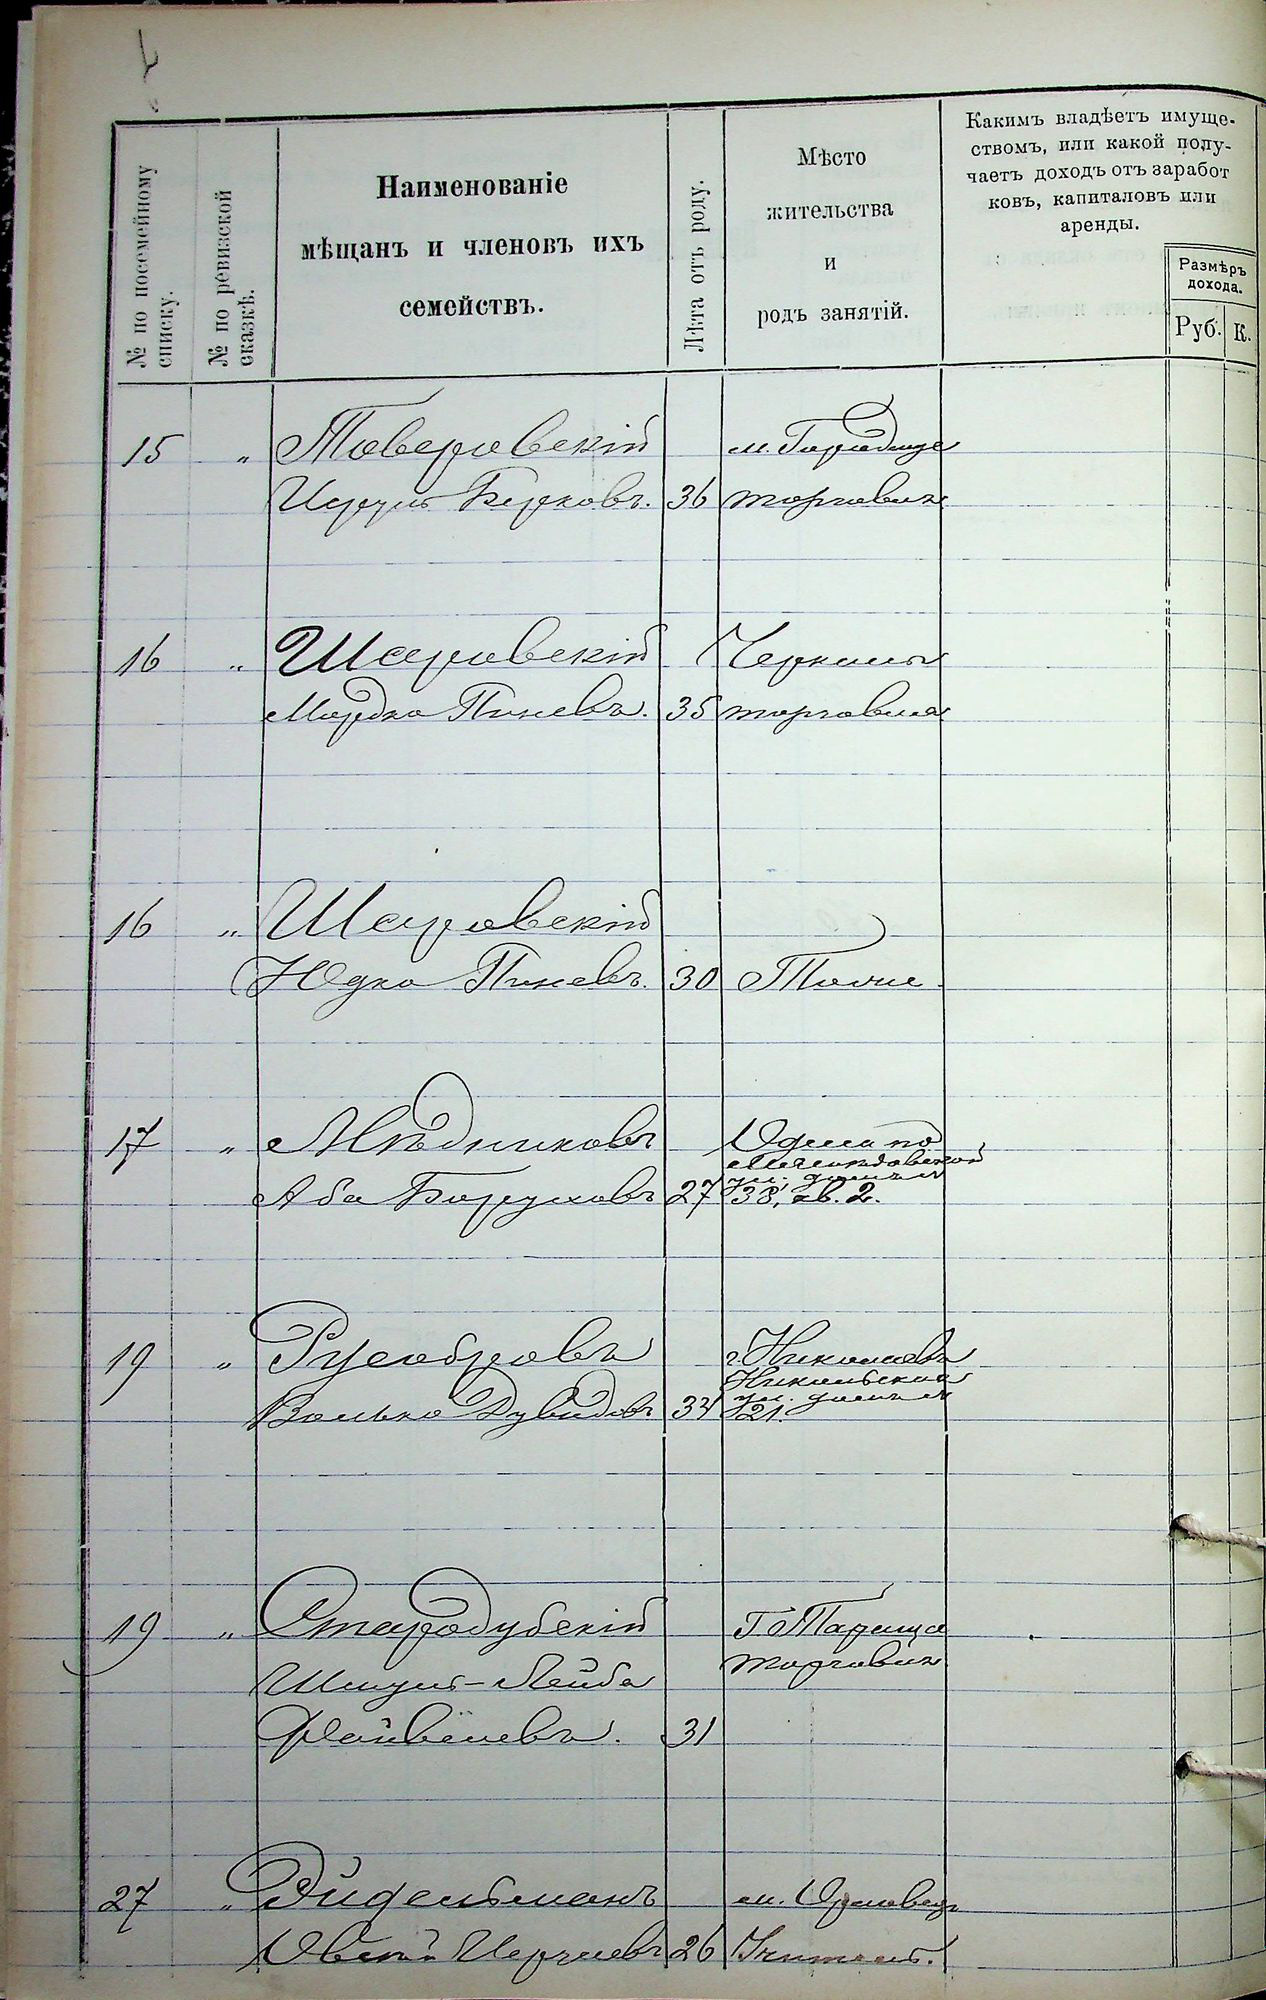 № по посемейному списку.
№ по ревизской сказкѣ.
Наименованіе
мѣщанъ и членовъ ихъ
семействъ.
Лѣта отъ роду.
Мѣсто
жительства
и
родъ занятій.
Какимъ владѣетъ имуще-
ствомъ, или какой полу-
чаетъ доходъ отъ заработ
ковъ, капиталовъ или
аренды.
Размѣръ
дохода.
Руб. К.
15 „ Товеровскій м. Городище
Берковъ. 36 торговля
16 „ Шаровскій Черкасы
Мордко Пиневъ. 35 торговля
16 „ Шаровскій
Юдко Пиневъ. 30 Тоже
17 „ Мѣдниковъ Одесса по
Аба Боруховъ 27 ул. домъ №
38, кв. 2.
19 „ г. Николаевъ
Никольская
ул. домъ №
Волько Дувидовъ 34 21.
19 „ Стародубскій Г. Тараща
Шмуль-Лейба торговля
Файвелевъ. 31
27 „ Эйдельманъ м. Орловецъ
Овсей 26 Учитель.